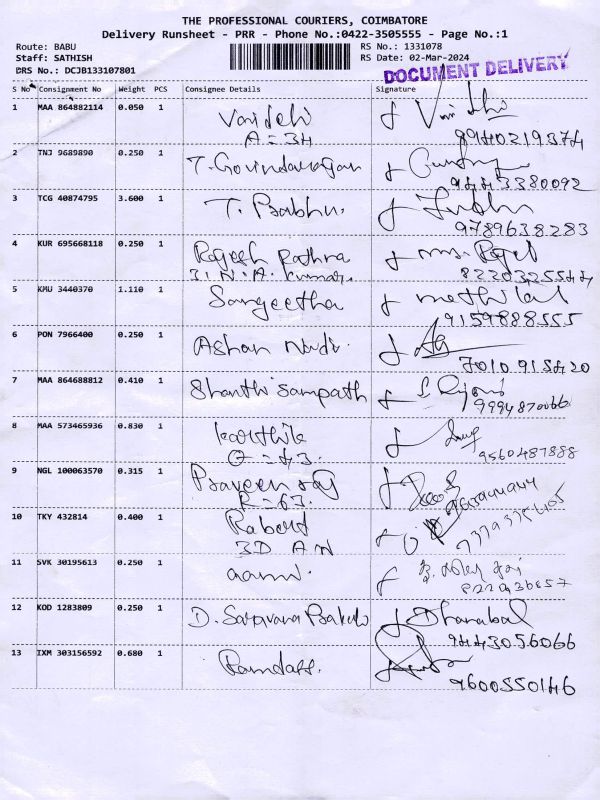 THE PROFESSIONAL COURIERS, COIMBATORE
Delivery Runsheet - PRR - Phone No.:0422-3505555 - Page No.:1
Route: BABU
Staff: SATHISH
DRS No.: DCJB133107801
RS No.: 1331078
RS Date: 02-Mar-2024
DOCUMENT DELIVERY
S No Consignment No Weight PCS Consignee Details Signature
1 MAA 864882114 0.050 1
9940219374
2 TNJ 9689890 0.250 1 T. Govindarajan
9443380092
3 TCG 40874795 3.600 1 T. Prabhu.
9789638283
4 KUR 695668118 0.250 1 Rajesh Rathna
3. N. A. Kumar.
5 KMU 3440370 1.110 1 Sangeetha
9159888555
6 PON 7966400 0.250 1
7010915420
7 MAA 864688812 0.410 1 Shanthi Sampath
9994870066
8 MAA 573465936 0.830 1 Karthik
9560487888
9 NGL 100063570 0.315 1 Praveen raj
R=63.
10 TKY 432814 0.400 1 Robert
3D A N
11 SVK 30195613 0.250 1
12 KOD 1283809 0.250 1 D. Saravana Dhanabal
9443056066
13 IXM 303156592 0.680 1 Ramdass.
9600550146